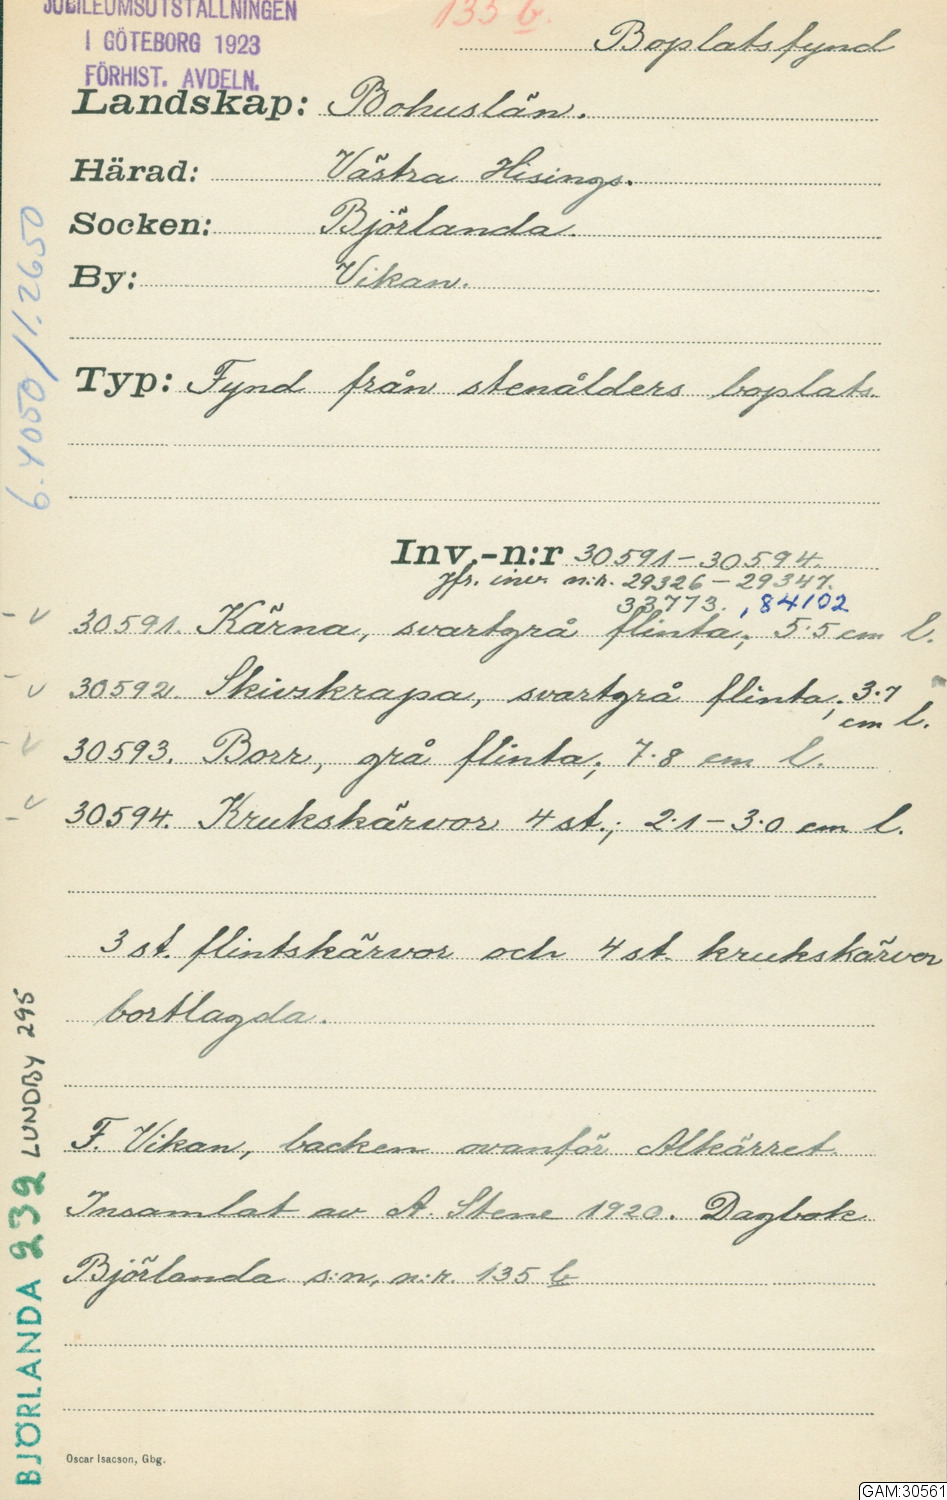 JUBILEUMSUTSTÄLLNINGEN
I GÖTEBORG 1923
FÖRHIST. AVDELN.
135 b.
Boplatsfynd
Landskap: Bohuslän.
Härad: Västra Hisings.
Socken: Björlanda.
By: Vikan.
Typ: Fynd från stenålders boplats.
Inv.-n:r 30591-30594.
Jfr. inv. n:r. 29326-29347.
33773. , 84102
30591. Kärna, svartgrå flinta; 5.5 cm l.
30592. Skivskrapa, svartgrå flinta; 3.7
cm l.
30593. Borr, grå flinta; 7.8 cm l.
30594. Krukskärvor 4 st.; 2.1-3.0 cm l.
3 st. flintskärvor och 4 st. krukskärvor
bortlagda.
F. Vikan, backen ovanför Alkärret.
Insamlat av A. Stene 1920. Dagbok
Björlanda s:n, n:r. 135 b
6.4050/11.2650
BJÖRLANDA 232 LUNDBY 295
Oscar Isacson, Gbg.
GAM:30561